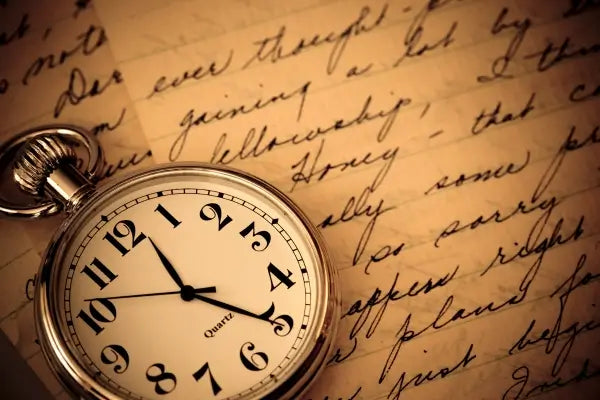 note
Dad ever thought
gaining a lot by
fellowship, I th
Honey - that c
ally some pr
so sorry
appen right
r plans fo
just begi
12 1 2 3 4 5 6 7 8 9 10 11
Quartz